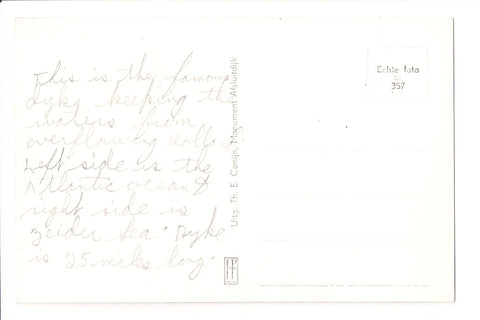 This is the famous
dyke keeping the
waters from
overflowing Holland
Left side is the
Atlantic ocean &
right side is
"Zeider Sea" Dyke
is 25 miles long.
Uitg. Th. E. Canijn, Monument Afsluitdijk
Echte foto
357